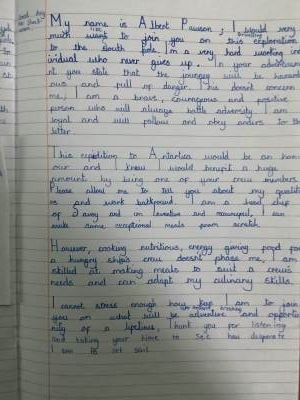 My name is Albert Pawson, I would very
much want to join you on this exploration
to the South Pole. I'm a very hard working ind
ividual who never gives up. In your advertisem
nt you state that the journey will be hazard
ous and full of danger. This doesnt concern
me, I am a brave, courageous and positive
person who will always battle adversity. I am
loyal and will follow and obey orders to the
letter.
This expedition to Antartica would be an hon
our and I know I would brought a huge
amount by being one of your crew members.
Please allow me to tell you about my qualiti
es and work background. I am a head chef
of and im inventive and resourceful, I can
make some exceptional meals from scratch.
However, cooking nutritious, energy giving food for
a hungry ships crew doesn't phase me, I am
skilled at making meals to suit a crew's
needs and can adapt my culinary skills.
I cannot stress enough how keen I am to join
you on what will be adventure and opportu
nity of a lifetime, Thank you for listening
and taking your time to see how desperate
I am to set sail.